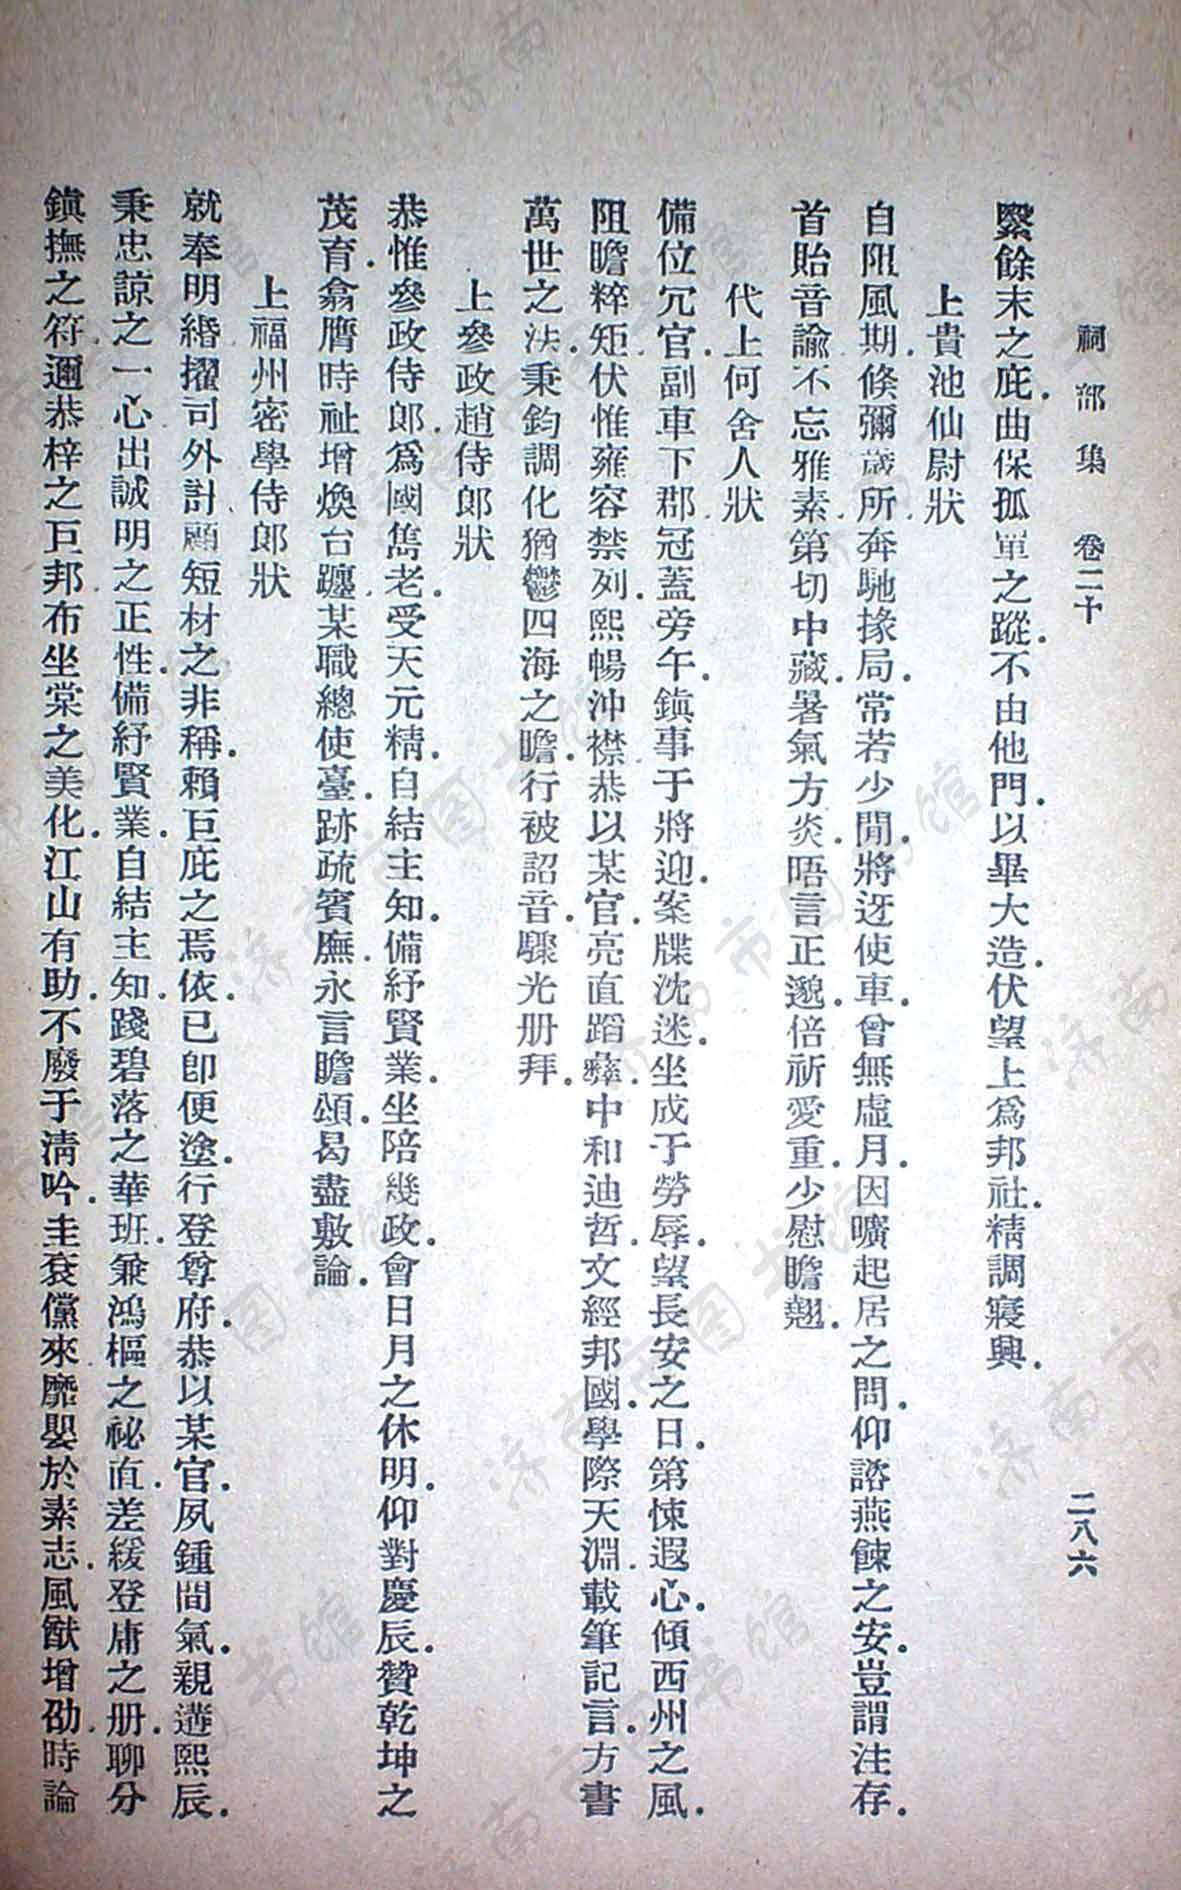 祠部集 卷二十 二八六
繄餘末之庇.曲保孤單之蹤.不由他門.以畢大造.伏望上爲邦社.精調寢興.
上貴池仙尉狀
自阻風期.倐彌歲所.奔馳掾局.常若少閒.將迓使車.曾無虛月.因曠起居之問.仰諮燕餗之安.豈謂注存.
首貽音諭.不忘雅素.第切中藏.暑氣方炎.晤言正邈.倍祈愛重.少慰瞻翹.
代上何舍人狀
備位冗官.副車下郡.冠蓋旁午.鎮事于將迎.案牒沈迷.坐成于勞辱.望長安之日.第悚遐心.傾西州之風.
阻瞻粹矩.伏惟雍容禁列.熙暢沖襟.恭以某官.亮直蹈彝.中和迪哲.文經邦國.學際天淵.載筆記言.方書
萬世之法.秉鈞調化.猶鬱四海之瞻.行被詔音.驟光册拜.
上參政趙侍郎狀
恭惟參政侍郎.爲國雋老.受天元精.自結主知.備紓賢業.坐陪幾政.會日月之休明.仰對慶辰.贊乾坤之
茂育.翕膺時祉.增煥台躔.某職總使臺.跡疏賓廡.永言瞻頌.曷盡敷論.
上福州密學侍郎狀
就奉明緡.擢司外計.顧短材之非稱.賴巨庇之焉依.已卽便塗.行登尊府.恭以某官.夙鍾間氣.親遘熙辰.
秉忠諒之一心.出誠明之正性.備紓賢業.自結主知.踐碧落之華班.兼鴻樞之祕直.差緩登庸之册.聊分
鎮撫之符.邇恭梓之巨邦.布坐棠之美化.江山有助.不廢于淸吟.圭袞儻來.靡嬰於素志.風猷增劭.時論